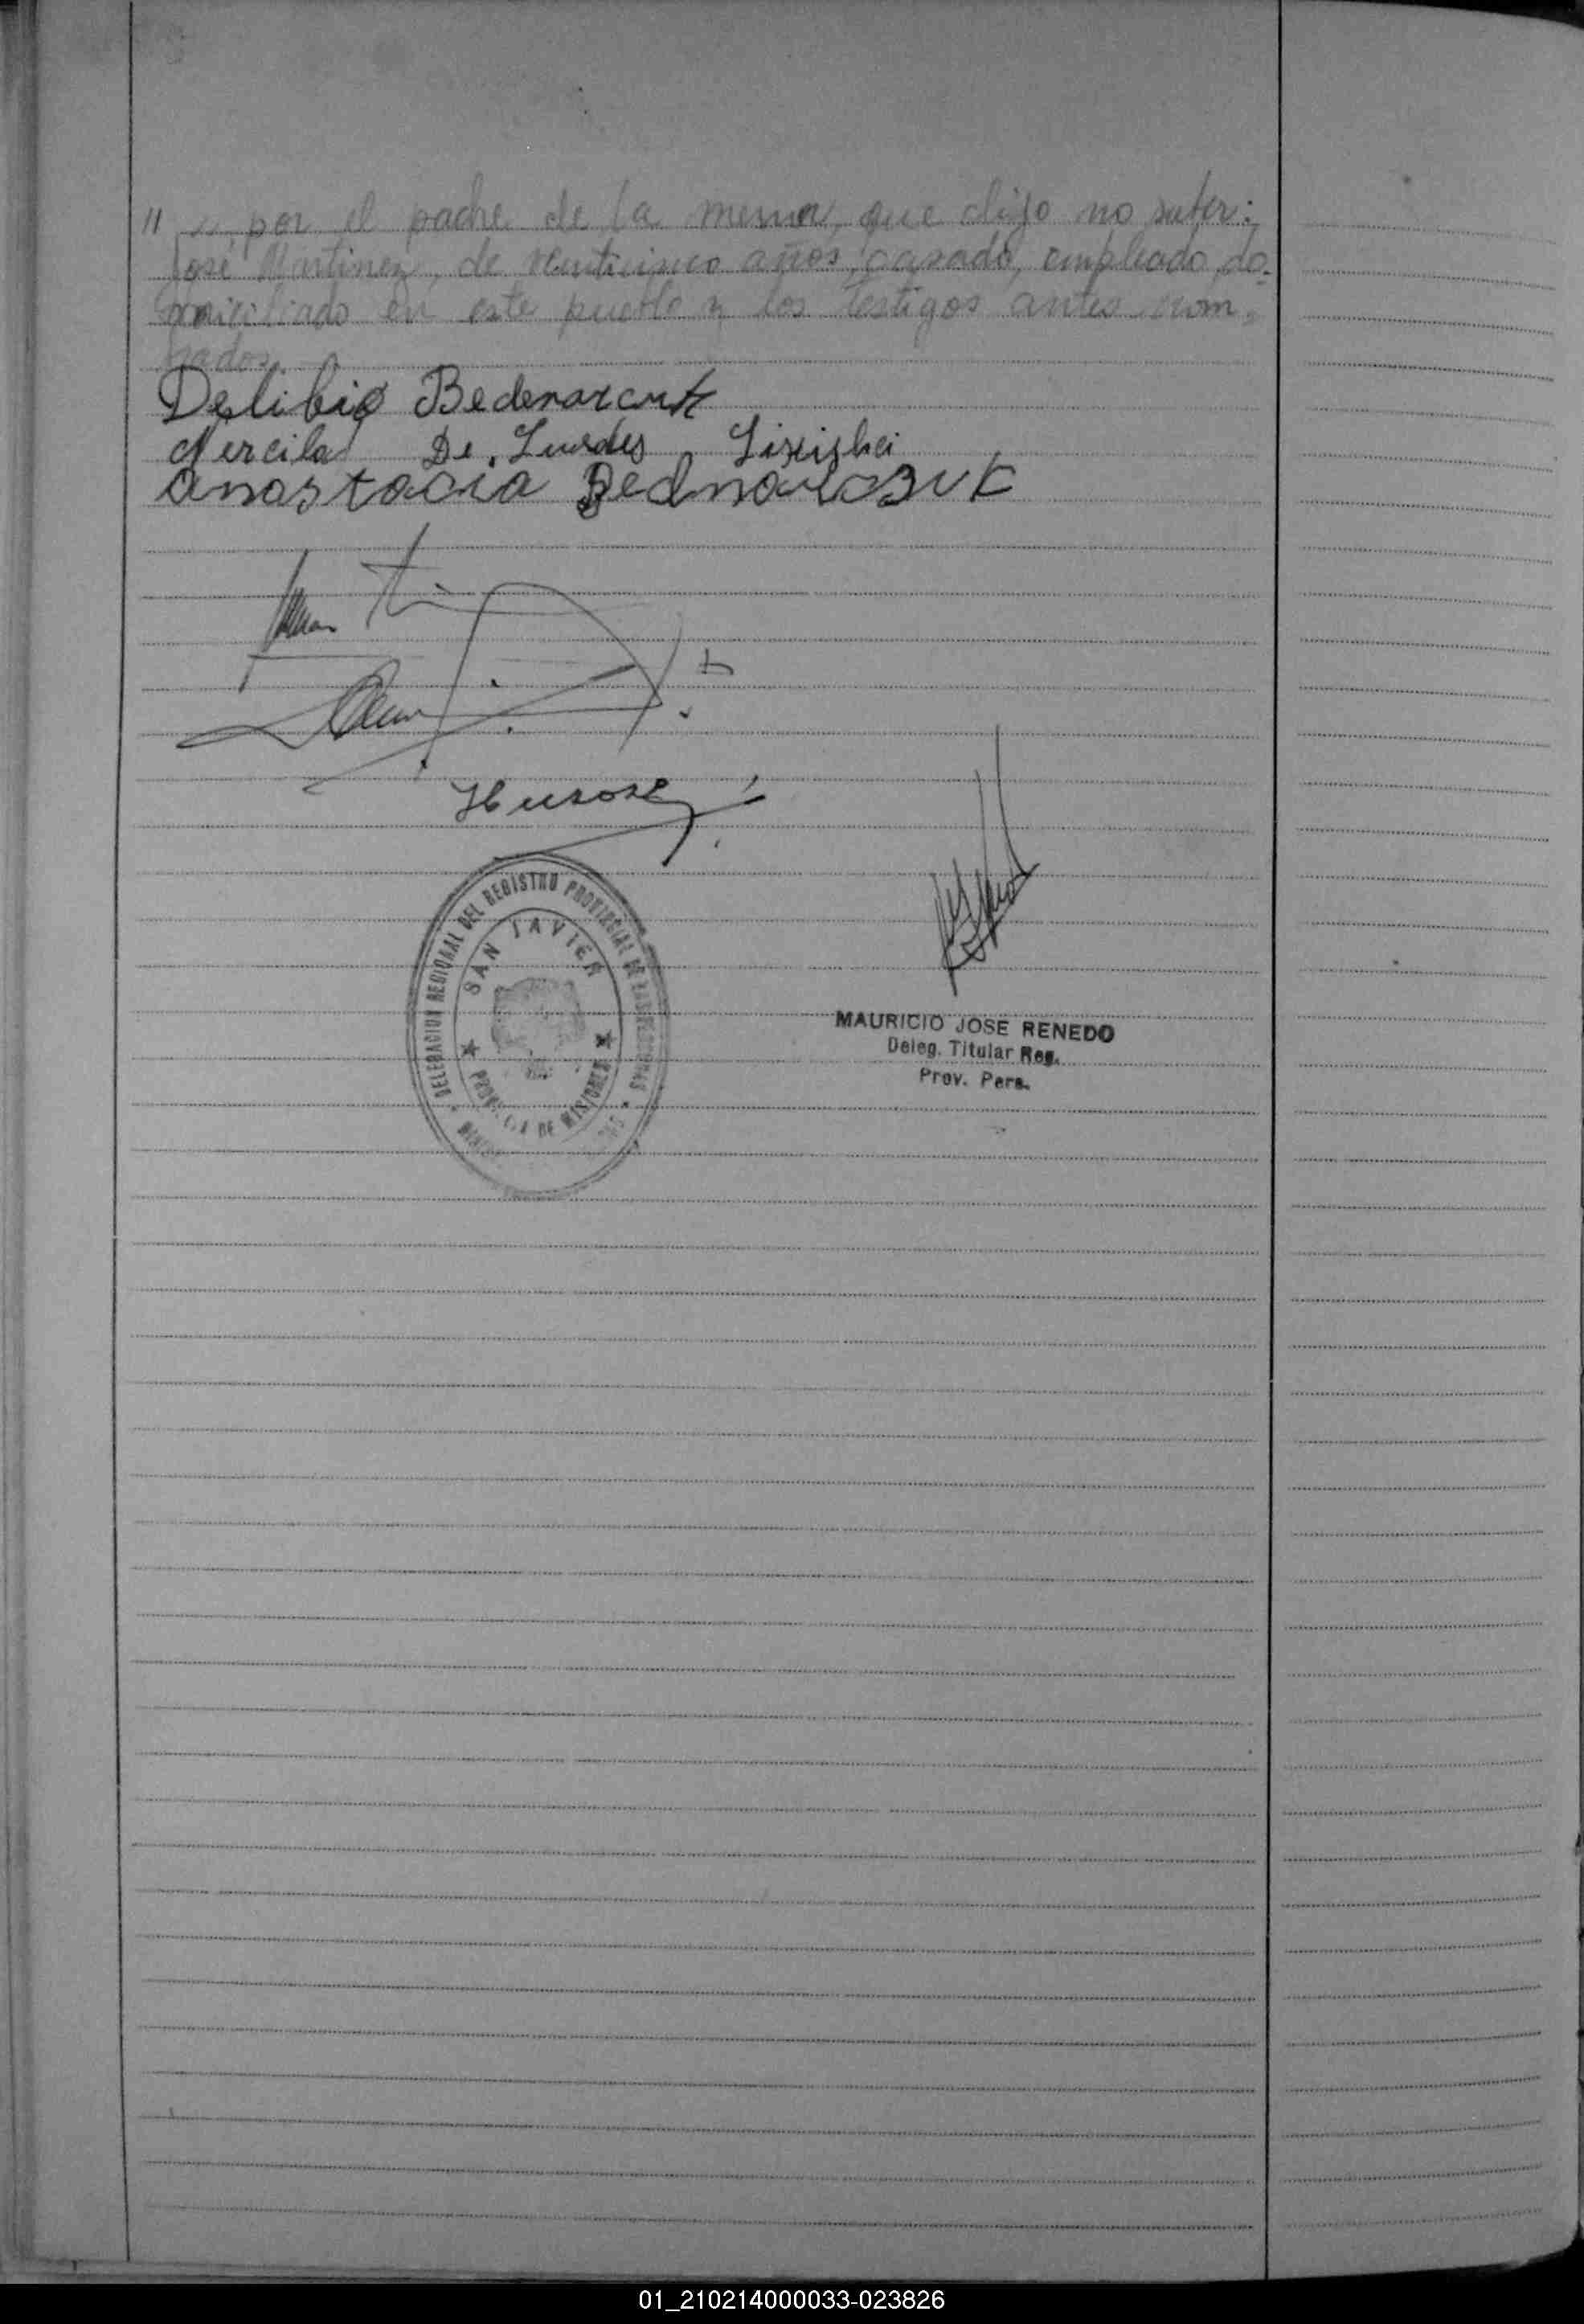 " por el padre de la mesma, que dijo no saber:
José Martinez, de veinticinco años, casado, empleado, do-
miciliado en este pueblo y los testigos antes nom-
Delibio Bedenarcuk
Nercila De. Lurdes
anastacia Bednarczuk
DELEGACION REGIONAL DEL REGISTRO PROVINCIAL DE LAS PERSONAS
SAN JAVIER
PROVINCIA DE MISIONES
MAURICIO JOSE RENEDO
Deleg. Titular Reg.
Prov. Pers.
01_210214000033-023826